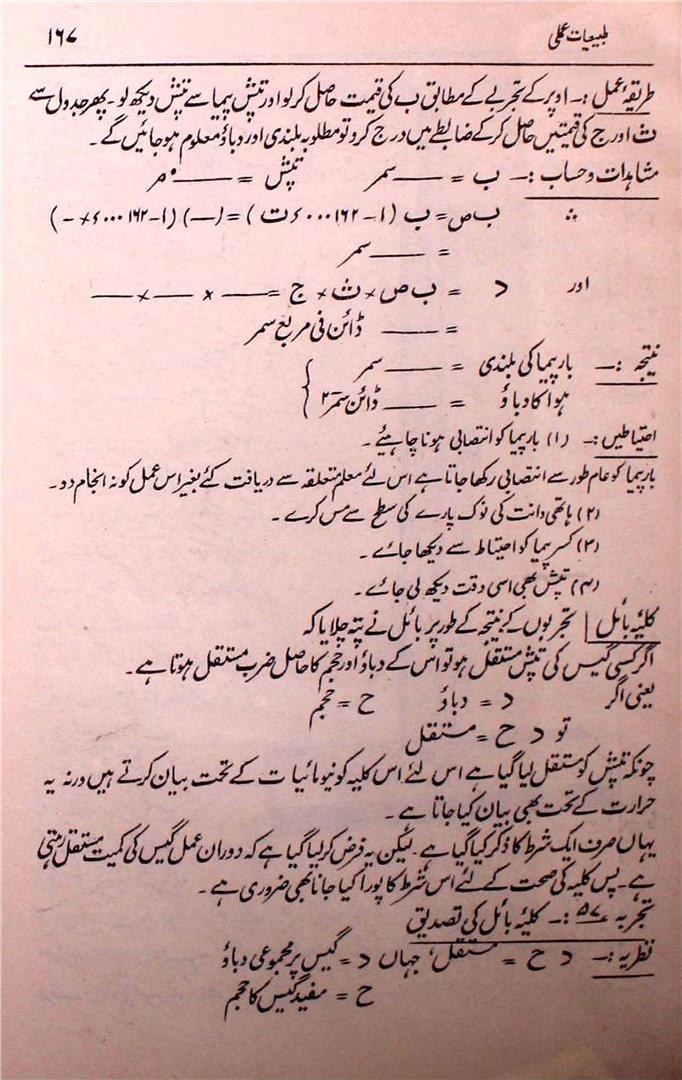 طبیعیات عملی ۱۶۷
طریقۂ عمل :۔ اوپر کے تجربے کے مطابق ب کی قیمت حاصل کرلو اور تپش پیما سے تپش دیکھ لو۔ پھر جدول سے
ث اور ج کی قیمتیں حاصل کرکے ضابطے میں درج کرو تو مطلوبہ بلندی اور دباؤ معلوم ہوجائیں گے۔
مشاہدات وحساب :۔ ب = —— سمر تپش = ——°مر
∴ ب ص = ب (۱ - ۰۰۰۱۶۲ء ت) = (—) (۱ - ۰۰۰۱۶۲ء × -)
= —— سمر
اور د = ب ص × ث × ج = —— × —— × ——
= —— ڈائن فی مربع سمر
نیتجہ :۔ بار پیما کی بلندی = —— سمر
ہوا کا دباؤ = —— ڈائن سمر-۲
احتیاطیں :۔ (۱) بار پیما کو انتصابی ہونا چاہیئے۔
بار پیما کو عام طور سے انتصابی رکھا جاتا ہے اس لئے معلم متعلقہ سے دریافت کئے بغیر اس عمل کو نہ انجام دو۔
(۲) ہاتھی دانت کی نوک پارے کی سطح سے مس کرے۔
(۳) کسر پیما کو احتیاط سے دیکھا جائے۔
(۴) تپش بھی اسی وقت دیکھ لی جائے۔
کلیۂ بائل | تجربوں کے نتیجہ کے طور پر بائل نے پتہ چلایا کہ
اگر کسی گیس کی تپش مستقل ہو تو اس کے دباؤ اور حجم کا حاصل ضرب مستقل ہوتا ہے۔
یعنی اگر د = دباؤ ح = حجم
تو د ح = مستقل
چونکہ تپش کو مستقل لیا گیا ہے اس لئے اس کلیہ کو نیومائیات کے تحت بیان کرتے ہیں ورنہ یہ
حرارت کے تحت بھی بیان کیا جاتا ہے۔
یہاں صرف ایک شرط کا ذکر کیا گیا ہے۔ لیکن یہ فرض کرلیا گیا ہے کہ دوران عمل گیس کی کمیت مستقل رہتی
ہے۔ پس کلیہ کی صحت کے لئے اس شرط کا پورا کیا جانا بھی ضروری ہے۔
تجربہ ۵۷ :۔ کلیۂ بائل کی تصدیق
نظریہ :۔ د ح = مستقل، جہاں د = گیس پر مجموعی دباؤ
ح = مفید گیس کا حجم